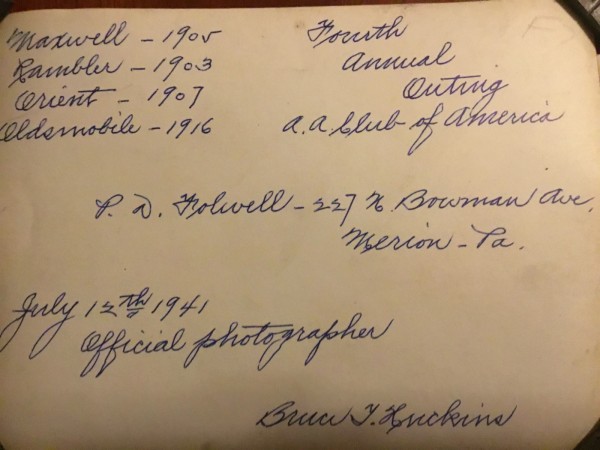 Maxwell - 1905
Rambler - 1903
Orient - 1907
Oldsmobile - 1916
Fourth
Annual
Outing
A.A. Club of America
P. D. Folwell - 227 N. Bowman Ave.
Merion - Pa.
July 12th 1941
Official photographer
Bruce T. Huckins